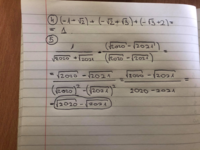 4) (-1-√2) + (-√2+√3) + (-√3+2) =
= 1
5)
1 / (√2020 + √2021) · (√2020 - √2021) / (√2020 - √2021) =
= (√2020 - √2021) / ((√2020)² - (√2021)²) = (√2020 - √2021) / (2020 - 2021)
= (√2020 - √2021)